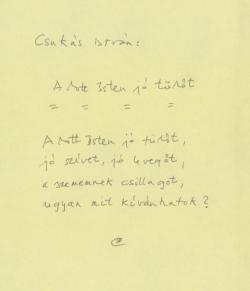 Csukás István:
Adott Isten jó tüdőt
= = = =
Adott Isten jó tüdőt,
jó szívet, jó levegőt,
a szememnek csillagot,
ugyan mit kívánhatok?